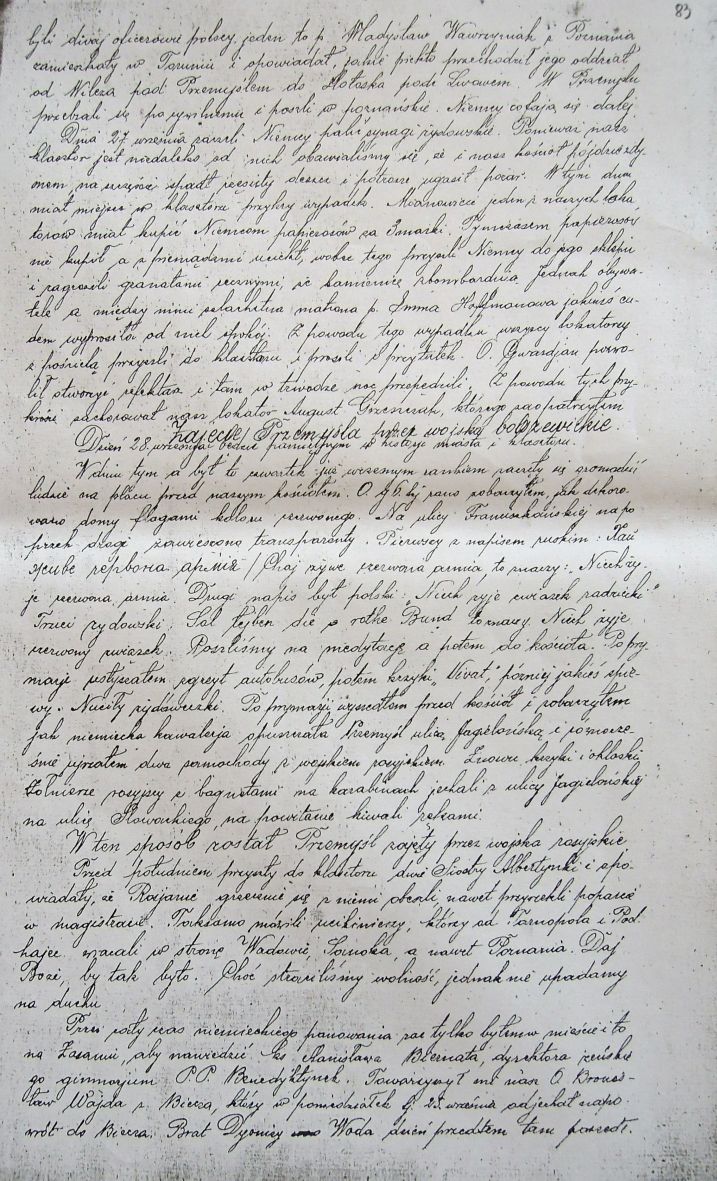 83
byli dwaj oficerowie polscy, jeden to p. Władysław Wawrzyniak z Poznania
zamieszkały w Toruniu i opowiadał, jakie piekło przechodził jego oddział
od Wilcza pod Przemyślem do Hołoska pode Lwowem. W Przemyślu
przebrali się po cywilnemu i poszli w poznańskie. Niemcy cofają się dalej
Dnia 27. września zaczęli Niemcy palić synagi żydowskie. Ponieważ nasz
klasztor jest niedaleko od nich obawialiśmy się, że i nasz kościół pójdzie z dy-
mem, na szczęście spadł rzęsisty deszcz i potrosze ugasił pożar. W tym dniu
miał miejsce w klasztorze przykry wypadek. Mianowicie jeden z naszych loka
torów miał kupić Niemcom papierosów za 3 marki. Tymczasem papierosów
nie kupił a z pieniądzami uciekł, wobec tego przyszli Niemcy do jego sklepu
i zagrozili granatami ręcznymi, że kamienicę zbombardują. Jednak obywa-
tele a między nimi szlachetna matrona p. Emma Hoffmanowa jakimś cu-
dem wyprosiła od nich spokój. Z powodu tego wypadku wszyscy lokatorzy
z pościelą przyszli do klasztoru i prosili o przytułek. O. Gwardjan pozwo-
lił otworzyć refektarz i tam w trwodze noc przepędzili. Z powodu tych przy-
krości zachorował nasz lokator August Grzesiak, którego zaopatrzyłem
Zajęcie Przemyśla przez wojska bolszewickie.
Dzień 28. września będzie pamiętnym w historji miasta i klasztoru.
W dniu tym a był to czwartek już wczesnym rankiem zaczęły się gromadzić
ludzie na placu przed naszym kościołem. O g. 6. tej rano zobaczyłem, jak dekoro-
wano domy flagami koloru czerwonego. Na ulicy Franciszkańskiej napo
przek drogi zawieszono transparenty. Pierwszy z napisem ruskim: Хай
живе червона армія / Chaj żywe czerwona armia, to znaczy: Niech ży-
je czerwona armia. Drugi napis był polski: „Niech żyje związek radziecki"
Trzeci żydowski: Sol lejben die rotke Bund to znaczy. Niech żyje
czerwony związek. Poszliśmy na medytację a potem do kościoła. Po pry-
marji usłyszałem zgrzyt autobusów, potem krzyki „Vivat", później jakieś śpie-
wy. Nuciły żydóweczki. Po prymarji wyszedłem przed kościół i zobaczyłem
jak niemiecka kawalerja opuszczała Przemyśl ulicą Jagielońską i równocze-
śnie ujrzałem dwa samochody z wojskiem rosyjskiem. Znowu krzyki i oklaski,
Żołnierze rosyjscy z bagnetami na karabinach jechali z ulicy Jagielońskiej
na ulicę Słowackiego, na powitanie kiwali rękami.
W ten sposób został Przemyśl zajęty przez wojska rosyjskie
Przed południem przyszły do klasztoru dwie Siostry Albertynki i opo-
wiadały, że Rosjanie grzecznie się z nimi obeszli, nawet przyrzekli poparcie
w magistracie. Toksamo mówili uciekinierzy, którzy od Tarnopola i Pod-
hajec wracali w stronę Wadowic, Sanoka, a nawet Poznania. Daj
Boże, by tak było. Choć straciliśmy wolność, jednak nie upadamy
na duchu
Przez cały czas niemieckiego panowania raz tylko byłem w mieście i to
na Zasaniu, aby nawiedzić ks. Stanisława Biernata, dyrektora żeńskie
go gimnazjum P.P. Benedyktynek. Towarzyszył mi nasz O. Broni-
sław Wajda z Biecza, który w poniedziałek tj. 25. września odjechał napo-
wrót do Biecza. Brat Dyonizy Woda dzień przedtem tam poszedł.